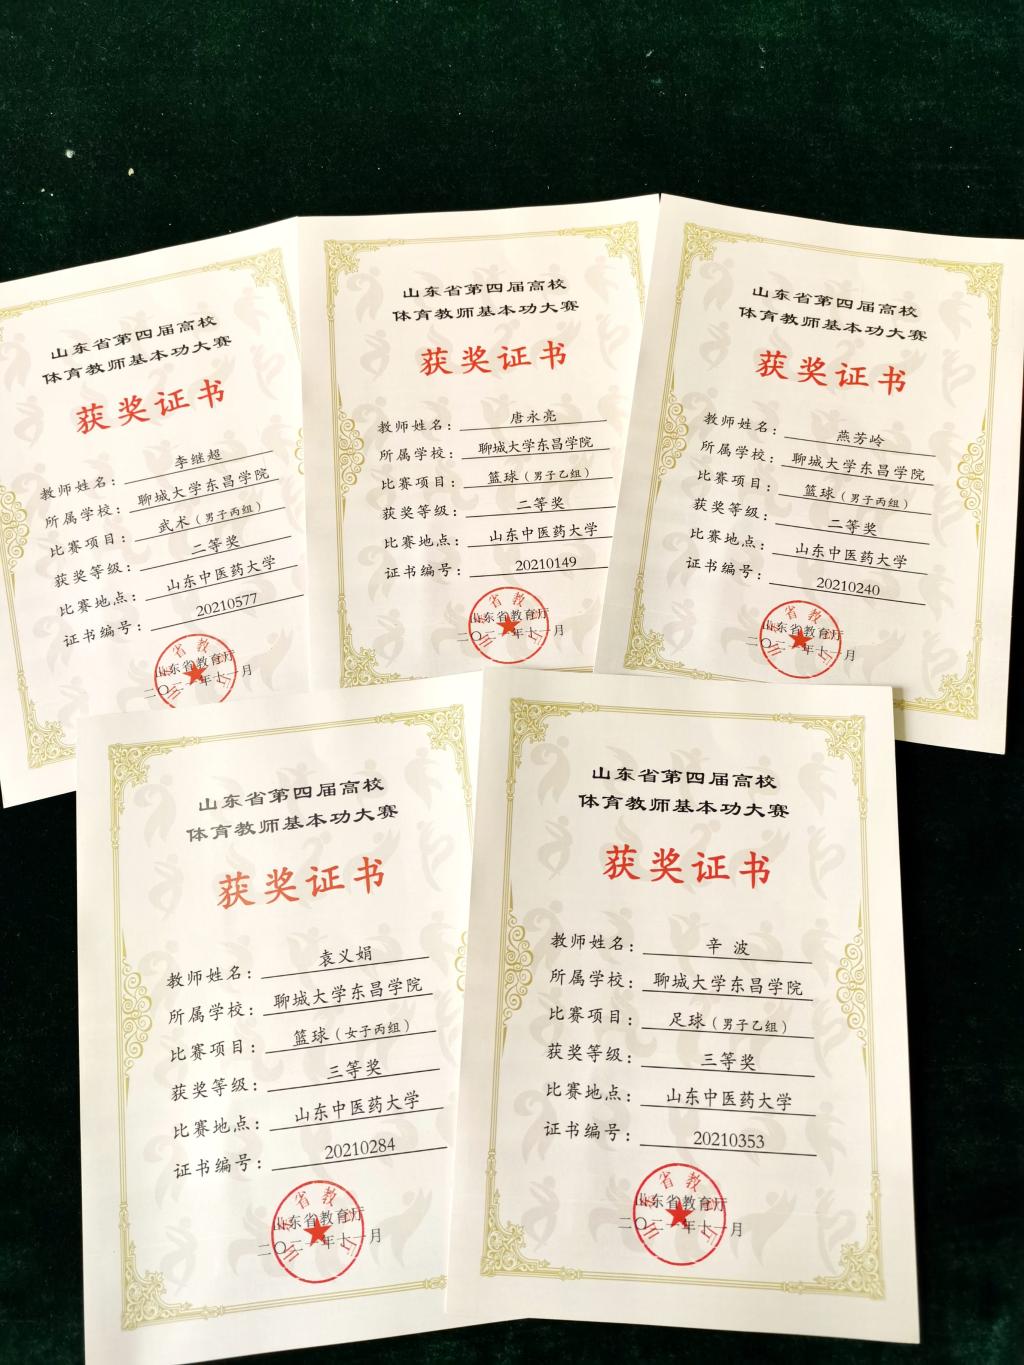 山东省第四届高校
体育教师基本功大赛
获奖证书
教师姓名：李继超
所属学校：聊城大学东昌学院
比赛项目：武术（男子丙组）
获奖等级：二等奖
比赛地点：山东中医药大学
证书编号：20210577
山东省教育厅
二〇二一年十一月
山东省第四届高校
体育教师基本功大赛
获奖证书
教师姓名：唐永亮
所属学校：聊城大学东昌学院
比赛项目：篮球（男子乙组）
获奖等级：二等奖
比赛地点：山东中医药大学
证书编号：20210149
山东省教育厅
二〇二一年十一月
山东省第四届高校
体育教师基本功大赛
获奖证书
教师姓名：燕芳岭
所属学校：聊城大学东昌学院
比赛项目：篮球（男子丙组）
获奖等级：二等奖
比赛地点：山东中医药大学
证书编号：20210240
山东省教育厅
二〇二一年十一月
山东省第四届高校
体育教师基本功大赛
获奖证书
教师姓名：袁义娟
所属学校：聊城大学东昌学院
比赛项目：篮球（女子丙组）
获奖等级：三等奖
比赛地点：山东中医药大学
证书编号：20210284
山东省教育厅
二〇二一年十一月
山东省第四届高校
体育教师基本功大赛
获奖证书
教师姓名：辛波
所属学校：聊城大学东昌学院
比赛项目：足球（男子乙组）
获奖等级：三等奖
比赛地点：山东中医药大学
证书编号：20210353
山东省教育厅
二〇二一年十一月